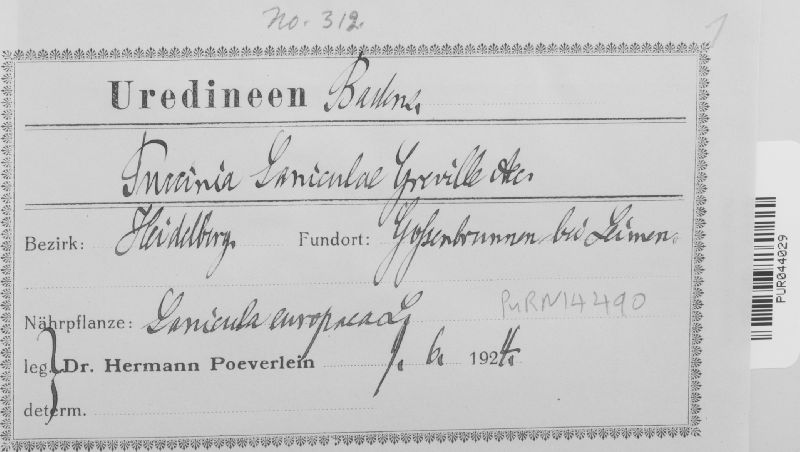 No. 312.
Uredineen Badens.
Puccinia Saniculae Greville
Bezirk: Heidelberg. Fundort: Goßenbrunnen bei Leimen.
PURN14490
Nährpflanze: Sanicula europaea L.
leg. Dr. Hermann Poeverlein 1. 6. 1924.
determ.
PUR044029